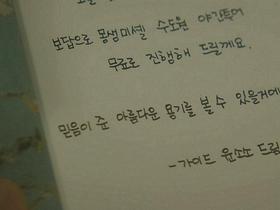 보답으로 몽생미셸 수도원 야간투어
무료로 진행해 드릴게요.
믿음이 준 아름다운 용기를 볼 수 있을거에
-가이드 윤소소 드림